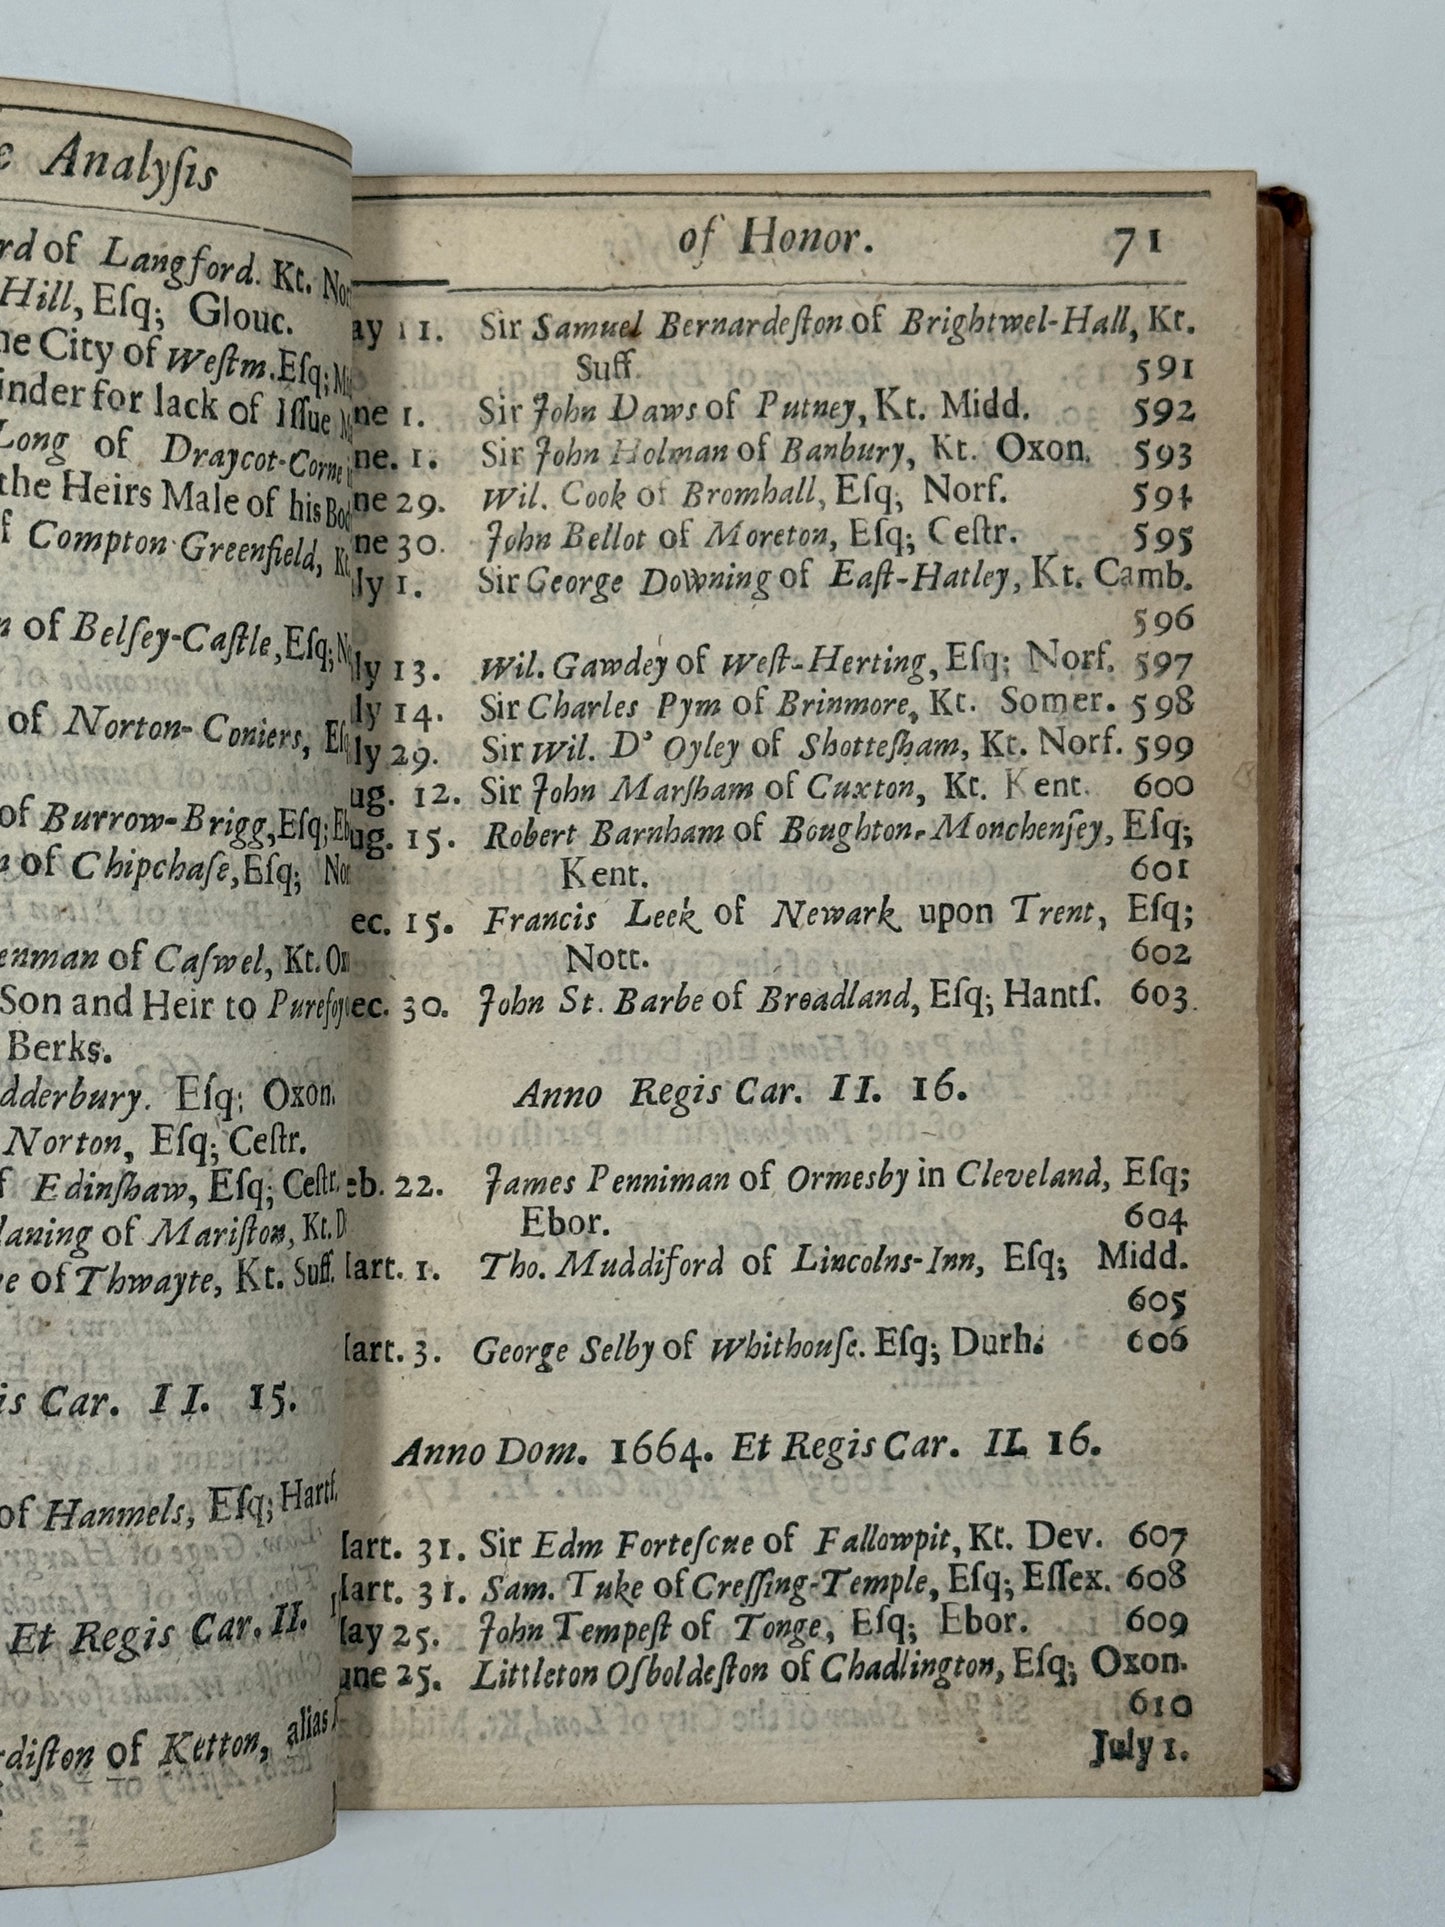 Analyſis
rd of Langford. Kt.
Hill, Eſq; Glouc.
City of Weſtm. Eſq;
inder for lack of Iſſue
Long of Draycot-Corne
the Heirs Male of his
Compton Greenfield,
of Belſey-Caſtle, Eſq;
of Norton-Coniers,
of Burrow-Brigg, Eſq;
of Chipchaſe, Eſq;
enman of Caſwel, Kt.
Son and Heir to
Berks.
dderbury. Eſq; Oxon.
Norton, Eſq; Ceſtr.
Edinſhaw, Eſq; Ceſtr.
laning of Mariſton, Kt.
of Thwayte, Kt. Suff.
is Car. II. 15.
of Hanmels, Eſq; Hartſ.
Et Regis Car. II.
rdiſton of Ketton, alias
of Honor. 71
ay 11. Sir Samuel Bernardeſton of Brightwel-Hall, Kt.
Suff. 591
ne 1. Sir John Daws of Putney, Kt. Midd. 592
ne. 1. Sir John Holman of Banbury, Kt. Oxon. 593
ne 29. Wil. Cook of Bromhall, Eſq; Norf. 594
ne 30. John Bellot of Moreton, Eſq; Ceſtr. 595
ly 1. Sir George Downing of Eaſt-Hatley, Kt. Camb.
596
ly 13. Wil. Gawdey of Weſt-Herting, Eſq; Norf. 597
ly 14. Sir Charles Pym of Brinmore, Kt. Somer. 598
ly 29. Sir Wil. D'Oyley of Shotteſham, Kt. Norf. 599
ug. 12. Sir John Marſham of Cuxton, Kt. Kent. 600
ug. 15. Robert Barnham of Boughton-Monchenſey, Eſq;
Kent. 601
ec. 15. Francis Leek of Newark upon Trent, Eſq;
Nott. 602
ec. 30. John St. Barbe of Broadland, Eſq; Hantſ. 603.
Anno Regis Car. II. 16.
eb. 22. James Penniman of Ormesby in Cleveland, Eſq;
Ebor. 604
art. 1. Tho. Muddiford of Lincolns-Inn, Eſq; Midd.
605
art. 3. George Selby of Whithouſe. Eſq; Durh. 606
Anno Dom. 1664. Et Regis Car. II. 16.
art. 31. Sir Edm Forteſcue of Fallowpit, Kt. Dev. 607
art. 31. Sam. Tuke of Creſſing-Temple, Eſq; Eſſex. 608
ay 25. John Tempeſt of Tonge, Eſq; Ebor. 609
une 25. Littleton Oſboldeſton of Chadlington, Eſq; Oxon.
610
July 1.